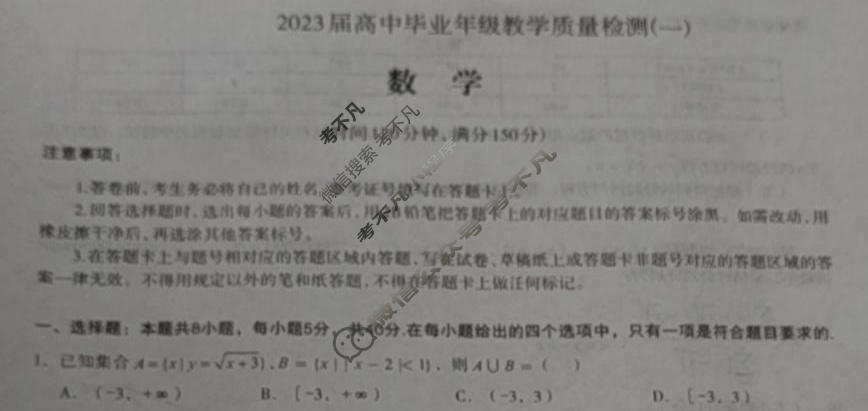 2023届高中毕业年级教学质量检测(一)
数 学
时间120分钟、满分150分)
注意事项:
1.答卷前,考生务必将自己的姓名、考证号填写在答题卡上。
2.回答选择题时,选出每小题的答案后,用铅笔把答题卡上的对应题目的答案标号涂黑。如需改动,用
橡皮擦干净后,再选涂其他答案标号。
3.在答题卡上与题号相对应的答题区域内答题,写在试卷、草稿纸上或答题卡非题号对应的答题区域的答
案一律无效。不得用规定以外的笔和纸答题,不得在答题卡上做任何标记。
一、选择题:本题共8小题,每小题5分,共40分.在每小题给出的四个选项中,只有一项是符合题目要求的.
1.已知集合A={x|y=√x+3},B={x||x-2|<1},则A∪B=( )
A.(-3,+∞) B.[-3,+∞) C.(-3,3) D.[-3,3)
考不凡
微信搜索 考不凡
小程序
微信公众号 考不凡